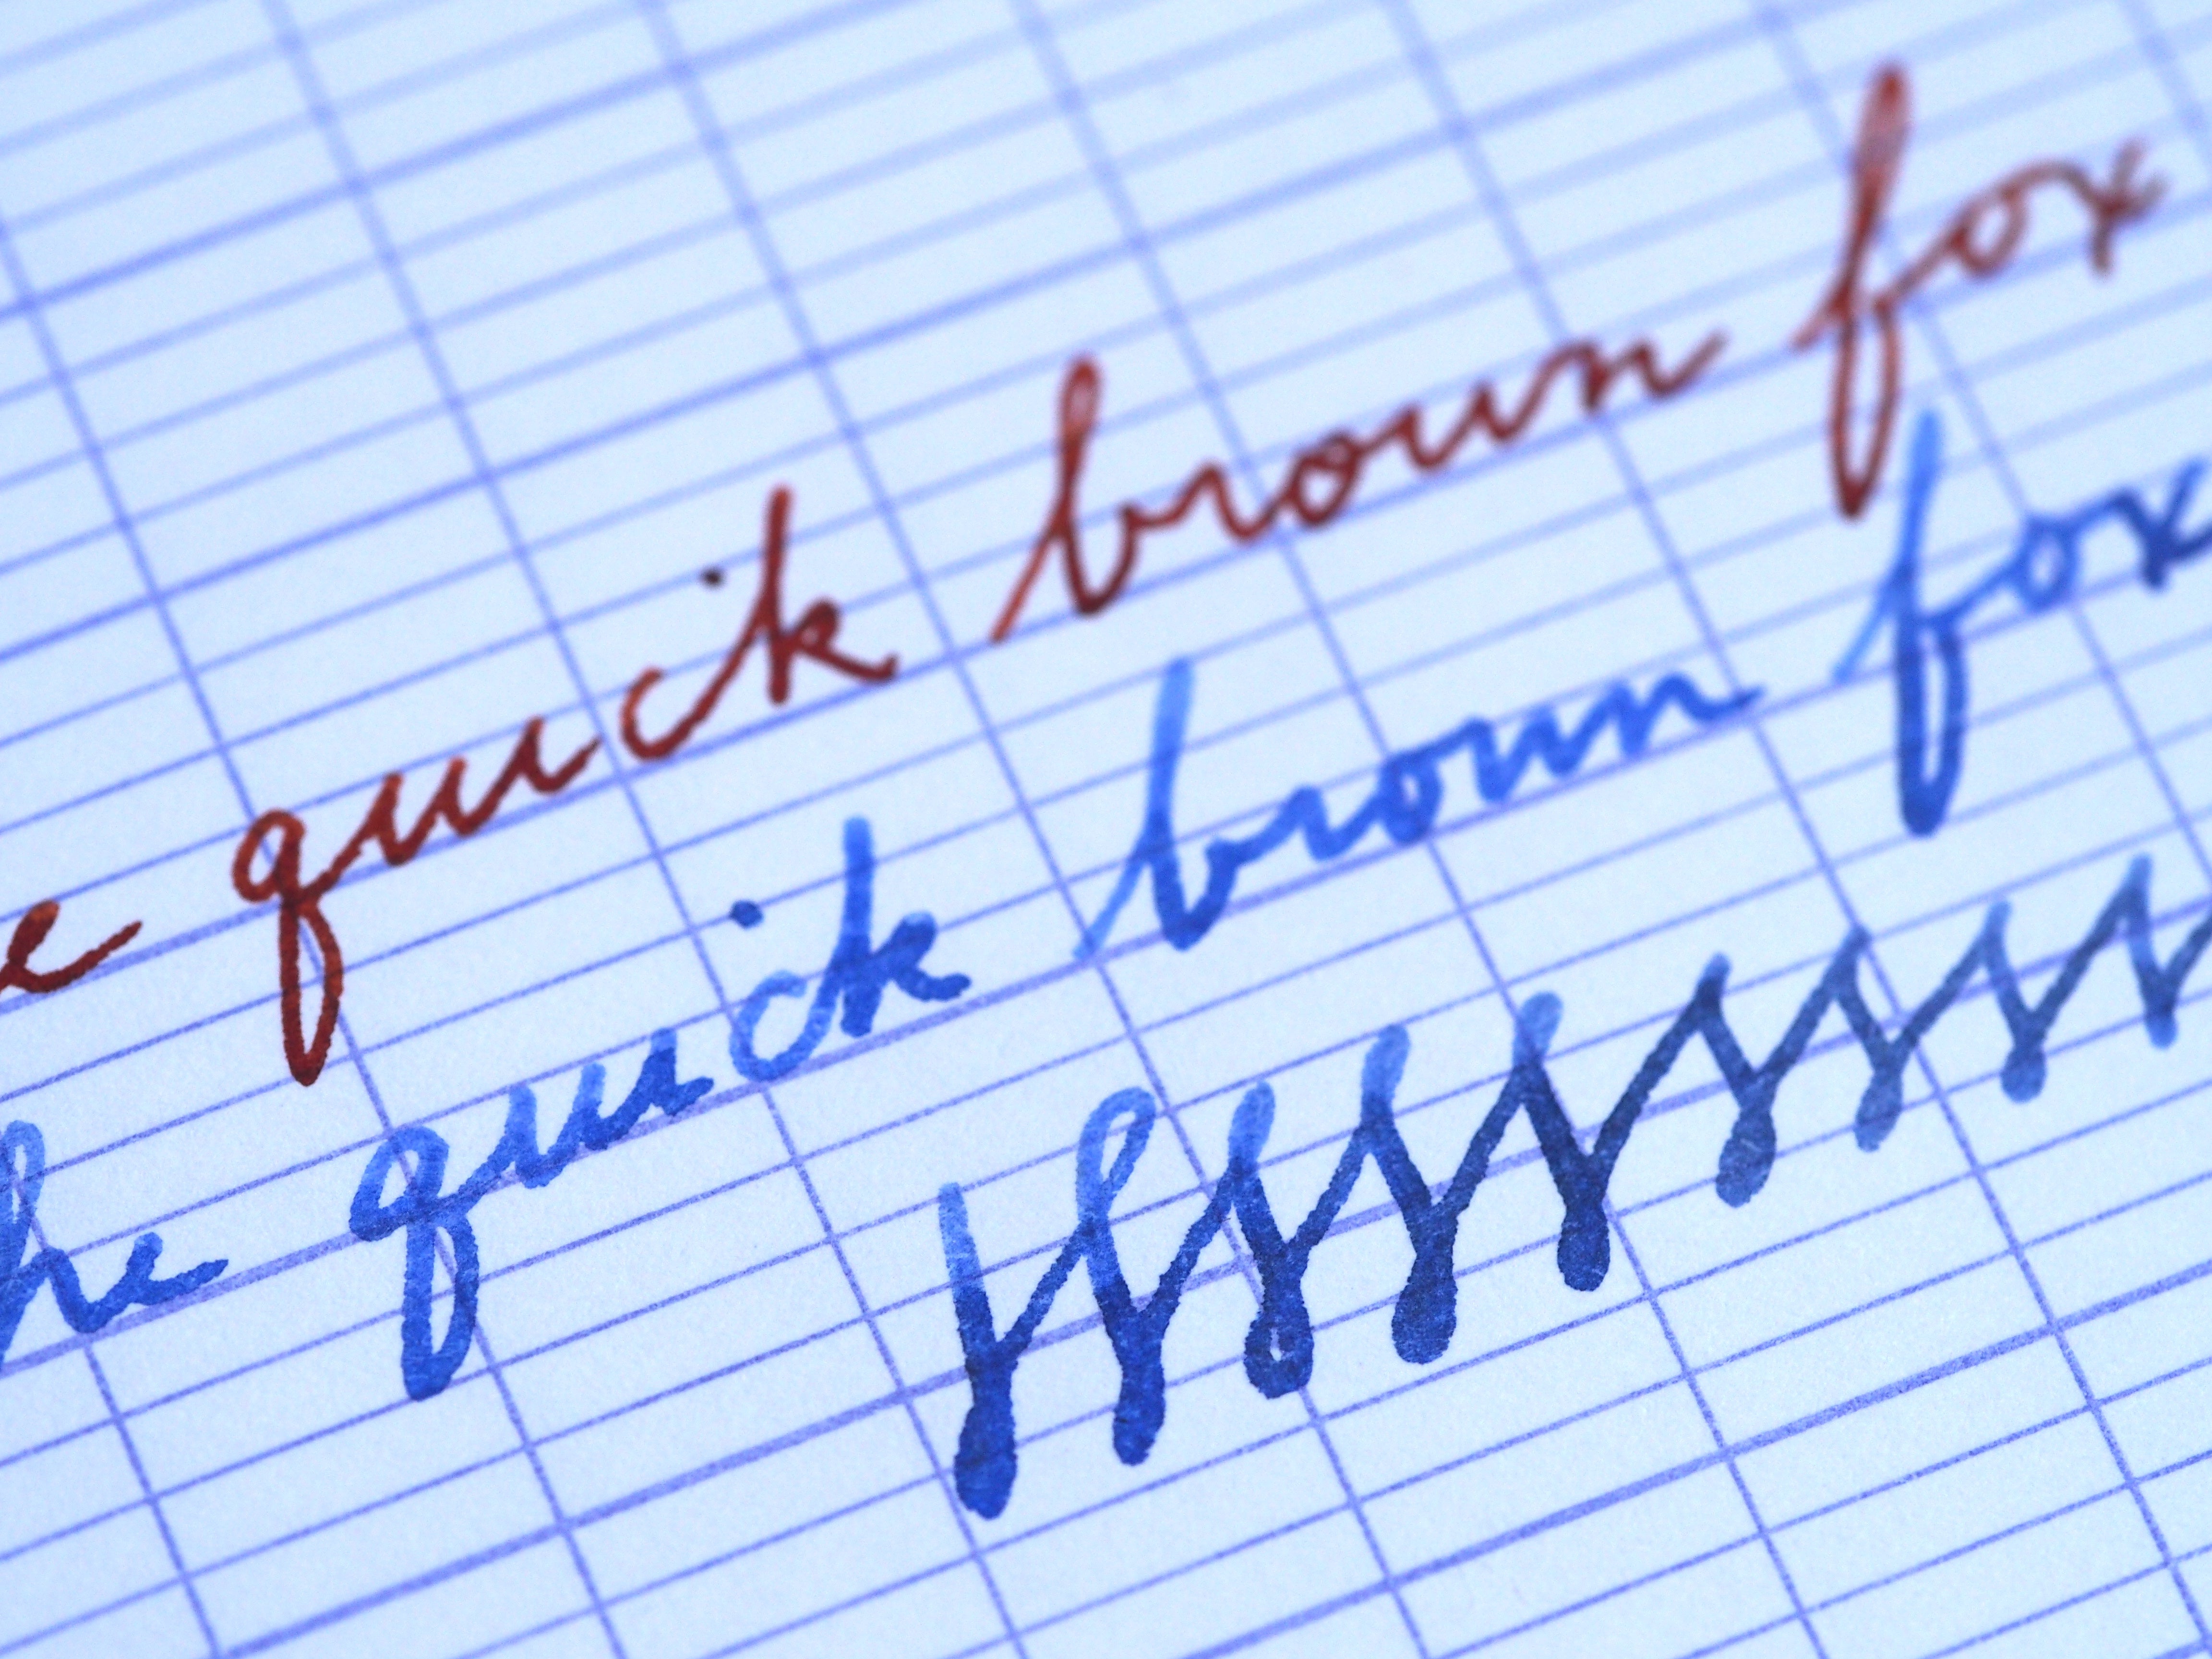 e quick brown fox
he quick brown fox